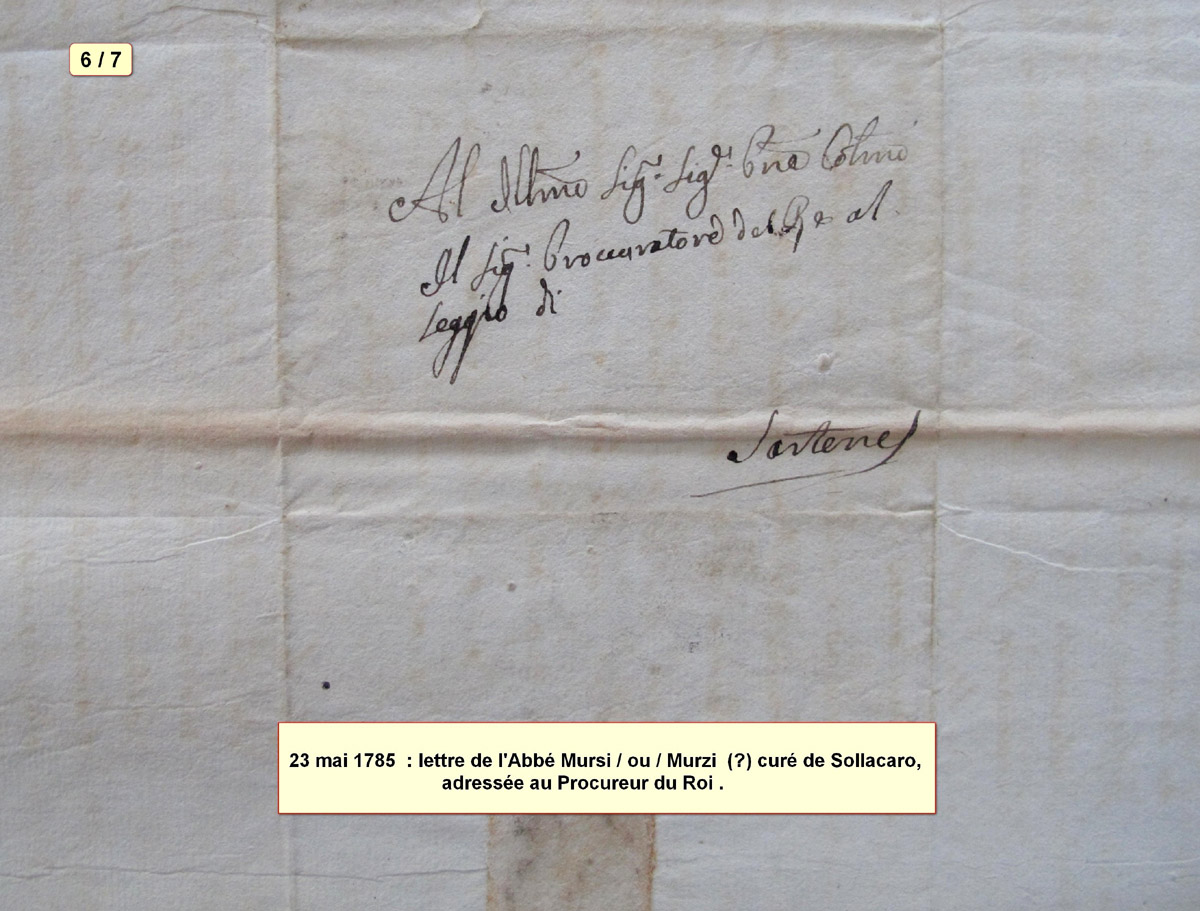 6 / 7
Al Illmo Sig.r Sig.r
Il Sig.r Procuratore del Re al
seggio di
Sartene
23 mai 1785 : lettre de l'Abbé Mursi / ou / Murzi (?) curé de Sollacaro,
adressée au Procureur du Roi .